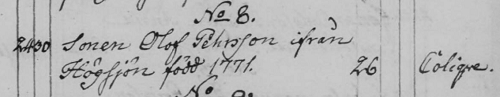 No 8.
2430 Sonen Olof Pehrsson ifrån
Högsjön född 1771. 26 Colique.
No